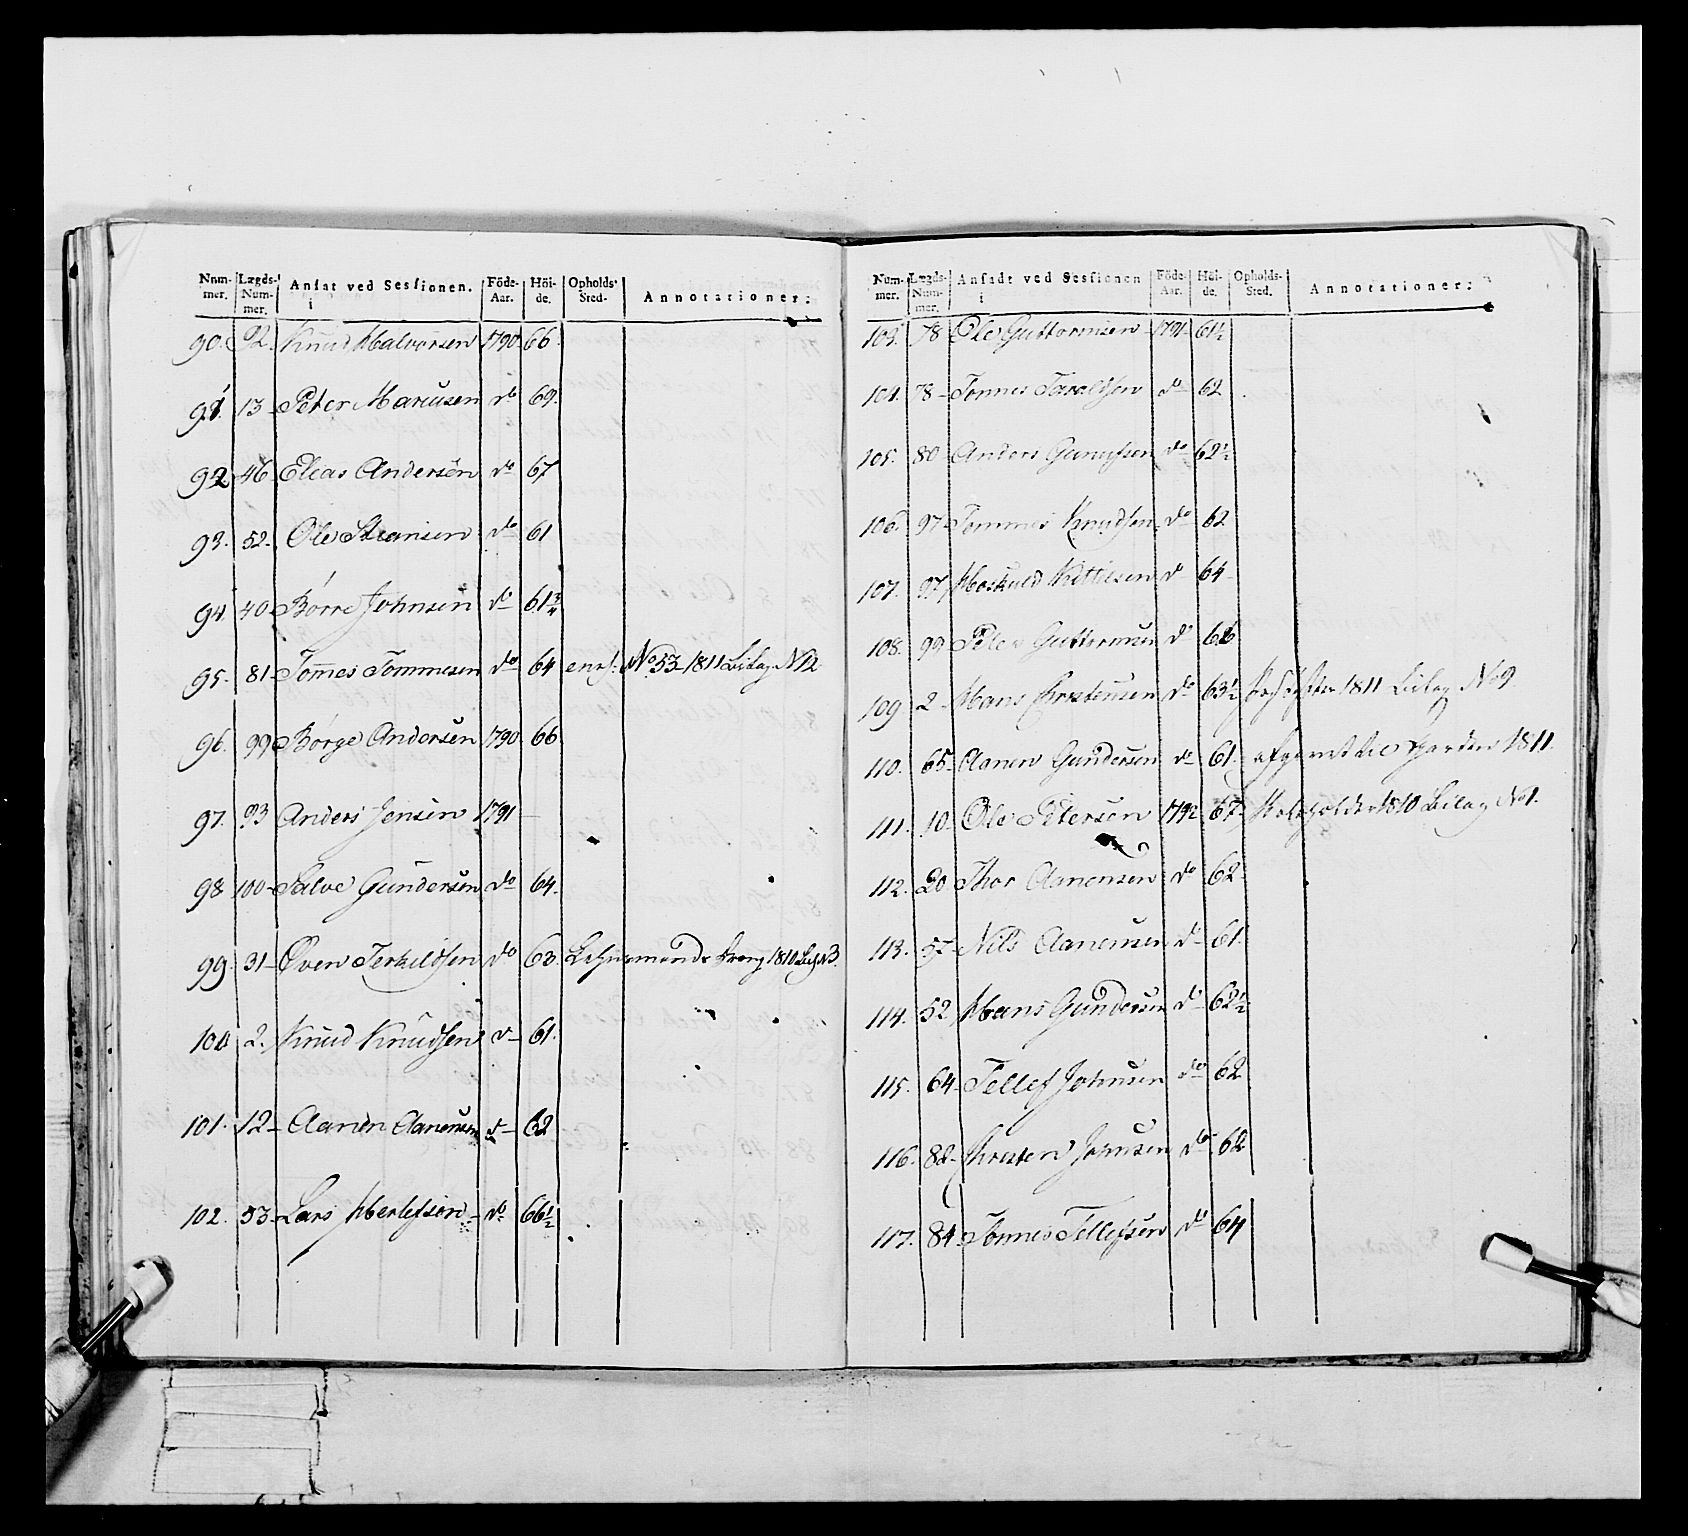 Num-mer. Lægds-Num-mer. Ansat ved Sessionen. i Föde-Aar. Höi-de. Opholds-Sted. Annotationer:
90. 92. Knud Halvorsen 1790 66
91. 13 Peter Mariusen do 69.
92 46 Elias Andersen do 67
93. 52. Ole do 61
94. 40 Børre Johnsen do 61¾
95. 81 Tomes Tommesen do 64 No 53 1811 Bilag N 12
96. 99 Børge Andersen 1790 66
97. 93 Anders Jensen 1791 —
98 100 Salve Gundersen do 64.
99. 31 Øven Terkildsen do 63. 1810 N3.
100 2. Knud Knudsen do 61.
101. 12 Aanen Aanensen do 62
102. 53 Lars Herlefsen do 66½
Num-mer. Lægds-Num-mer. Ansadt ved Sessionen i Föde-Aar. Höi-de. Opholds-Sted. Annotationer:
103. 78 Ole Guttormsen 1791 61½
104. 78 Tonnes Taraldsen do 62
105. 80 Anders Gunufsen do 62½
106. 97 Tommes Knudsen do 62
107. 97 Hoskuld Kittilsen do 64
108. 99 Peter Guttormsen do 62
109 2 Hans Christensen do 63½ 1811 Bilag No 9
110. 65. Aanen Gundersen do 61. afgaaet til Garden 1811.
111. 10. Ole Petersen 1792 67 1810 Bilag No 1.
112. 20 Thor Aanensen do 62
113. 57 Nils Aanensen do 61.
114. 52. Hans Gundersen do 62½
115. 64 Tellef Johnsen do 62
116. 82 Christen Johnsen do 62
117. 84 Tønnes Tellefsen do 64